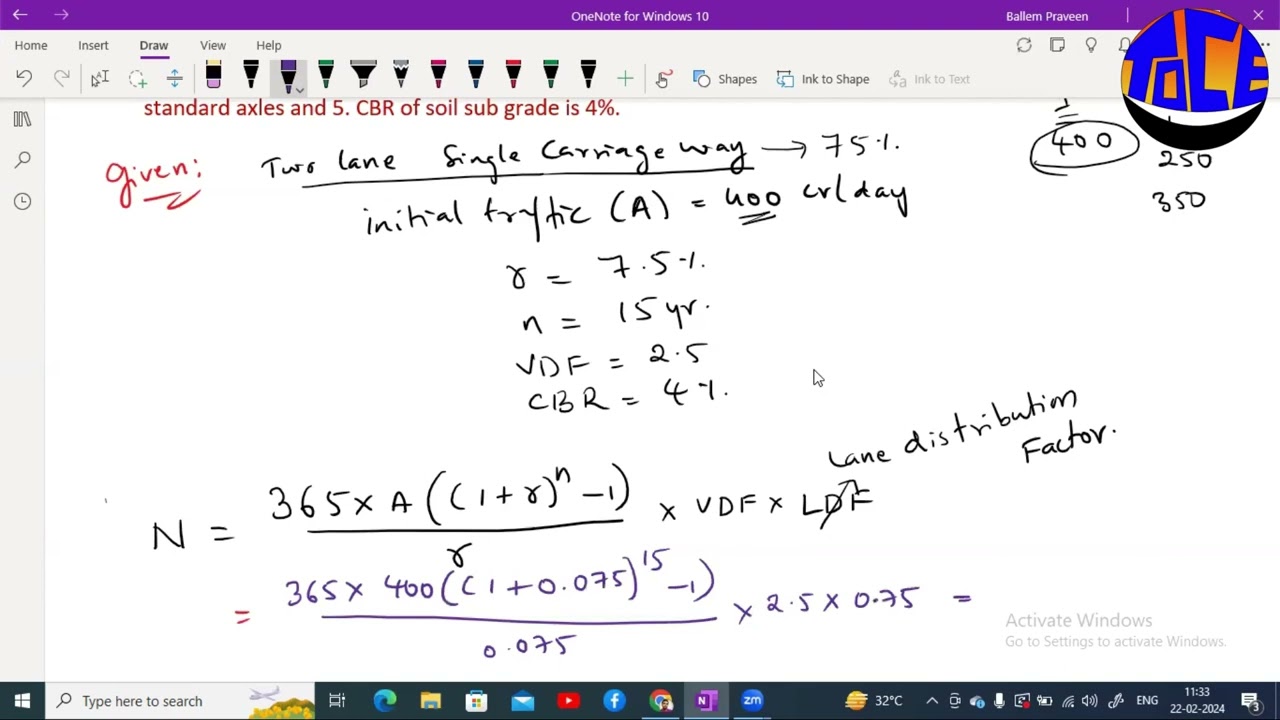 OneNote for Windows 10
Ballem Praveen
Home Insert Draw View Help
Shapes Ink to Shape Ink to Text
standard axles and 5. CBR of soil sub grade is 4%.
Given: Two lane Single Carriage way → 75%.
400
250
350
initial traffic (A) = 400 cv/day
r = 7.5%.
n = 15 yr.
VDF = 2.5
CBR = 4%.
Lane distribution
Factor.
N = 365 × A ((1+r)^n -1) / r × VDF × LDF
= 365 × 400 ((1+0.075)^15 -1) / 0.075 × 2.5 × 0.75 =
Activate Windows
Go to Settings to activate Windows.
Type here to search
32°C
ENG
11:33
22-02-2024
3